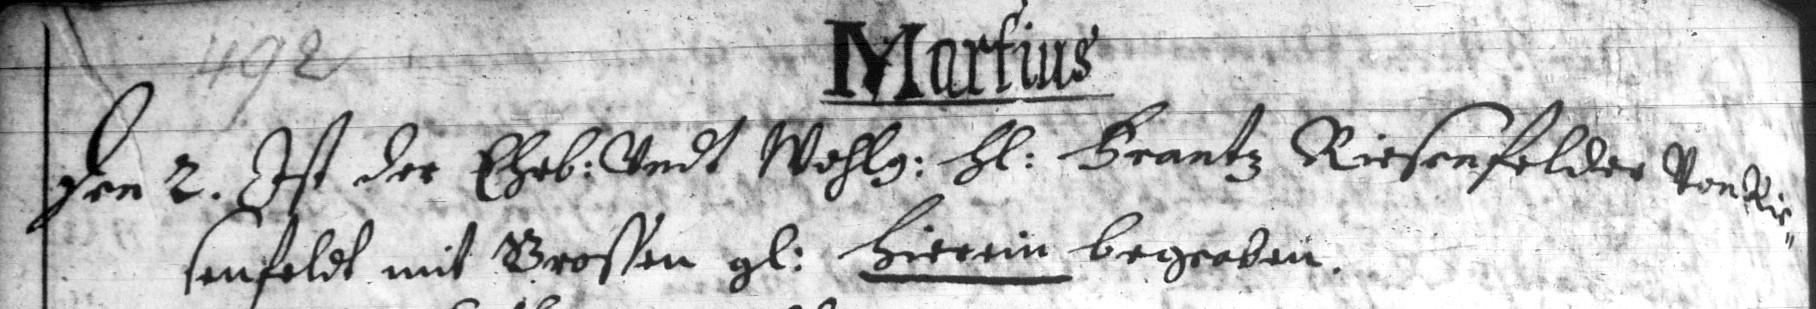 492
Martius
Den 2. Ist der Ehrb: Vndt Wohlg: hl: Frantz Riesenfelder Von Rie-
senfeldt mit Grossen gl: hierein begraben.